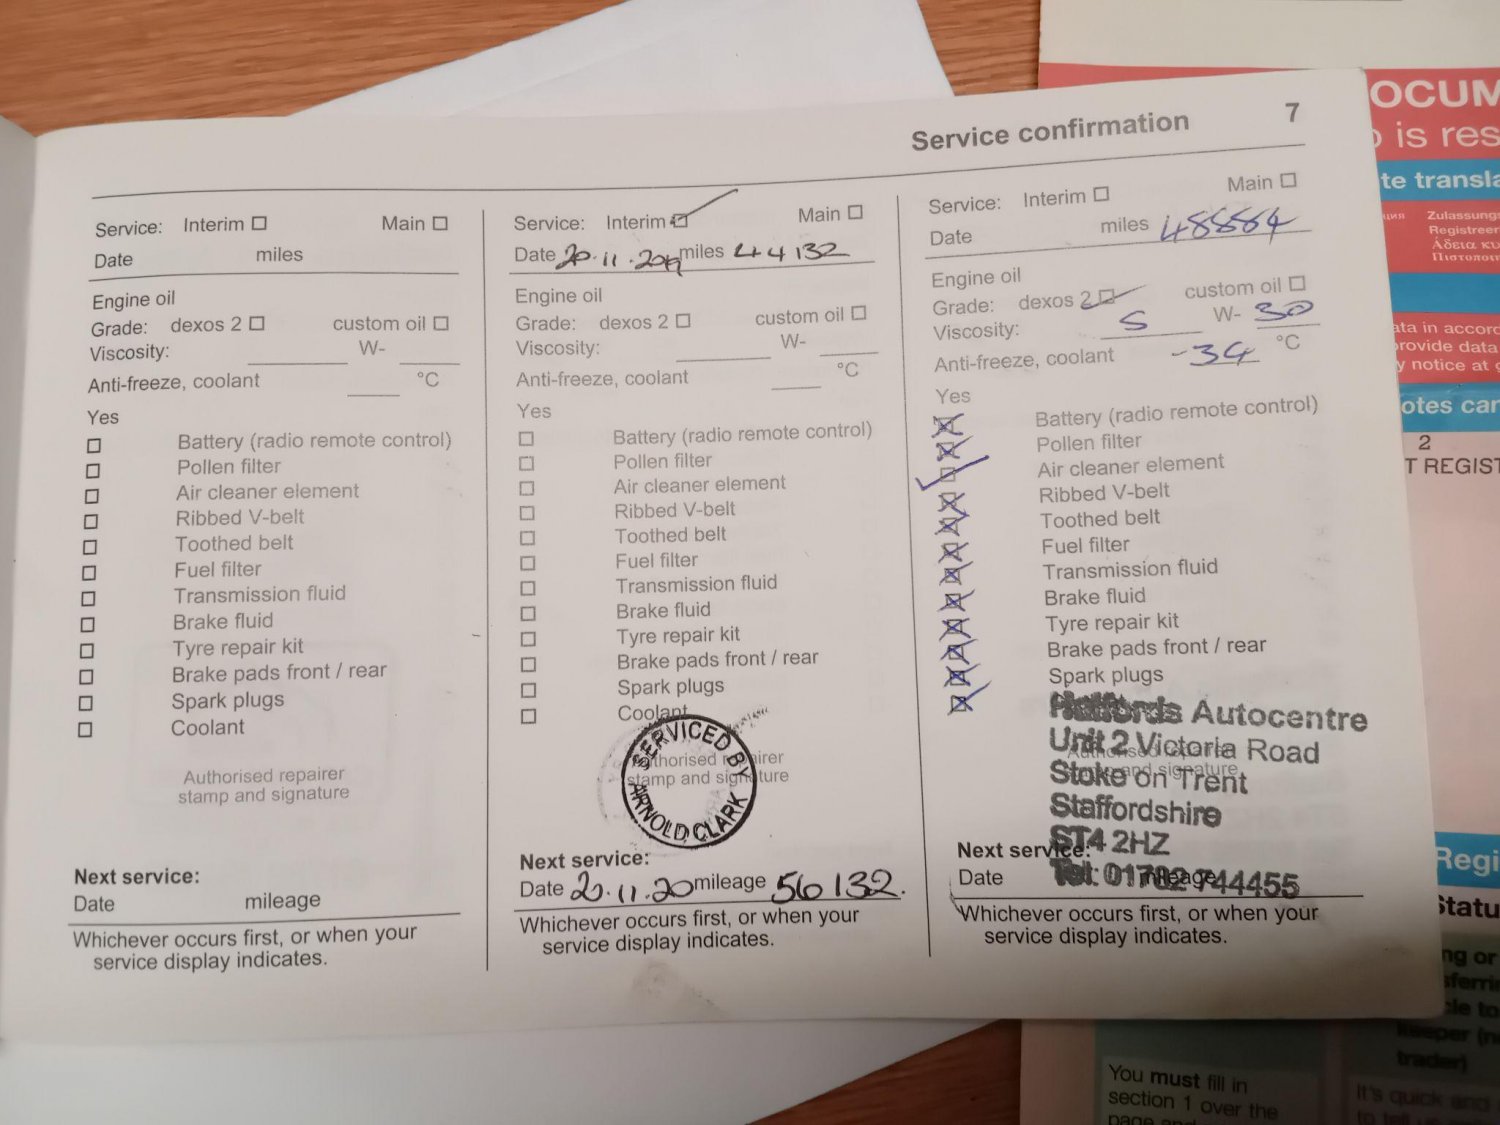 Service confirmation 7
Service: Interim Main
Date miles
Engine oil
Grade: dexos 2 custom oil
Viscosity: W-
Anti-freeze, coolant °C
Yes
Battery (radio remote control)
Pollen filter
Air cleaner element
Ribbed V-belt
Toothed belt
Fuel filter
Transmission fluid
Brake fluid
Tyre repair kit
Brake pads front / rear
Spark plugs
Coolant
Authorised repairer
stamp and signature
Next service:
Date mileage
Whichever occurs first, or when your
service display indicates.
Service: Interim Main
Date 20.11.2019 miles 44132
Engine oil
Grade: dexos 2 custom oil
Viscosity: W-
Anti-freeze, coolant °C
Yes
Battery (radio remote control)
Pollen filter
Air cleaner element
Ribbed V-belt
Toothed belt
Fuel filter
Transmission fluid
Brake fluid
Tyre repair kit
Brake pads front / rear
Spark plugs
Coolant
SERVICED BY
ARNOLD CLARK
Authorised repairer
stamp and signature
Next service:
Date 20.11.20 mileage 56132.
Whichever occurs first, or when your
service display indicates.
Service: Interim Main
Date miles 48884
Engine oil
Grade: dexos 2 custom oil
Viscosity: 5 W- 30
Anti-freeze, coolant -34 °C
Yes
Battery (radio remote control)
Pollen filter
Air cleaner element
Ribbed V-belt
Toothed belt
Fuel filter
Transmission fluid
Brake fluid
Tyre repair kit
Brake pads front / rear
Spark plugs
Halfords Autocentre
Unit 2 Victoria Road
Stoke on Trent
Staffordshire
ST4 2HZ
Tel: 01782 744455
Authorised repairer
stamp and signature
Next service:
Date mileage
Whichever occurs first, or when your
service display indicates.
OCUM
is res
te transla
Zulassungs
Registreer
Άδεια κυ
Πιστοποι
ata in accord
provide data
y notice at
otes car
2
T REGIST
Regi
Statu
ng or
sferri
cle to
keeper (n
trader)
It's quick and
to tell us
You must fill in
section 1 over the
page and